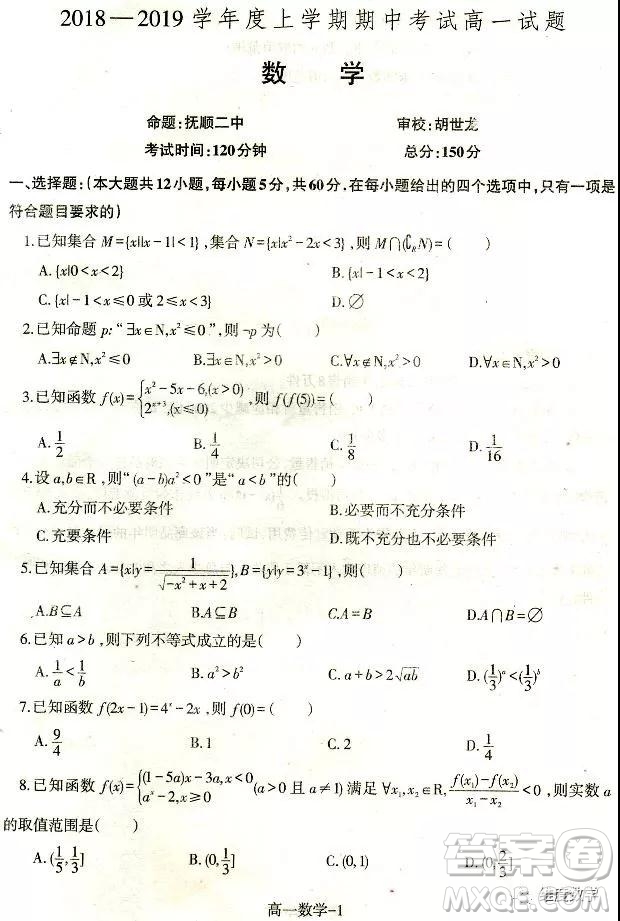 2018—2019学年度上学期期中考试高一试题
数 学
命题:抚顺二中 审校:胡世龙
考试时间:120分钟 总分:150分
一、选择题:(本大题共12小题,每小题5分,共60分.在每小题给出的四个选项中,只有一项是
符合题目要求的)
1.已知集合 M={x||x-1|<1},集合 N={x|x²-2x<3},则 M∩(∁RN)=( )
A.{x|0<x<2} B.{x|-1<x<2}
C.{x|-1<x≤0 或 2≤x<3} D.∅
2.已知命题 p:“∃x∈N,x²≤0”,则¬p 为( )
A.∃x∉N,x²≤0 B.∃x∈N,x²>0 C.∀x∉N,x²≤0 D.∀x∈N,x²>0
3.已知函数 f(x)={x²-5x-6,(x>0) 2^{x+3},(x≤0) ,则 f(f(5))=( )
A.1/2 B.1/4 C.1/8 D.1/16
4.设 a,b∈R,则“(a-b)a²<0”是“a<b”的( )
A.充分而不必要条件 B.必要而不充分条件
C.充要条件 D.既不充分也不必要条件
5.已知集合 A={x|y=1/√(-x²+x+2)},B={y|y=3^x-1},则( )
A.B⊆A B.A⊆B C.A=B D.A∩B=∅
6.已知 a>b,则下列不等式成立的是( )
A.1/a<1/b B.a²>b² C.a+b>2√ab D.(1/3)^a<(1/3)^b
7.已知函数 f(2x-1)=4^x-2x,则 f(0)=( )
A.9/4 B.1 C.2 D.1/4
8.已知函数 f(x)={(1-5a)x-3a,x<0 a^x-2,x≥0 (a>0 且 a≠1)满足 ∀x₁,x₂∈R,(f(x₁)-f(x₂))/(x₁-x₂)<0,则实数 a
的取值范围是( )
A.(1/5,1/3] B.(0,1/3] C.(0,1) D.(0,2/3]
高一数学-1
答案圈
MXQE.COM